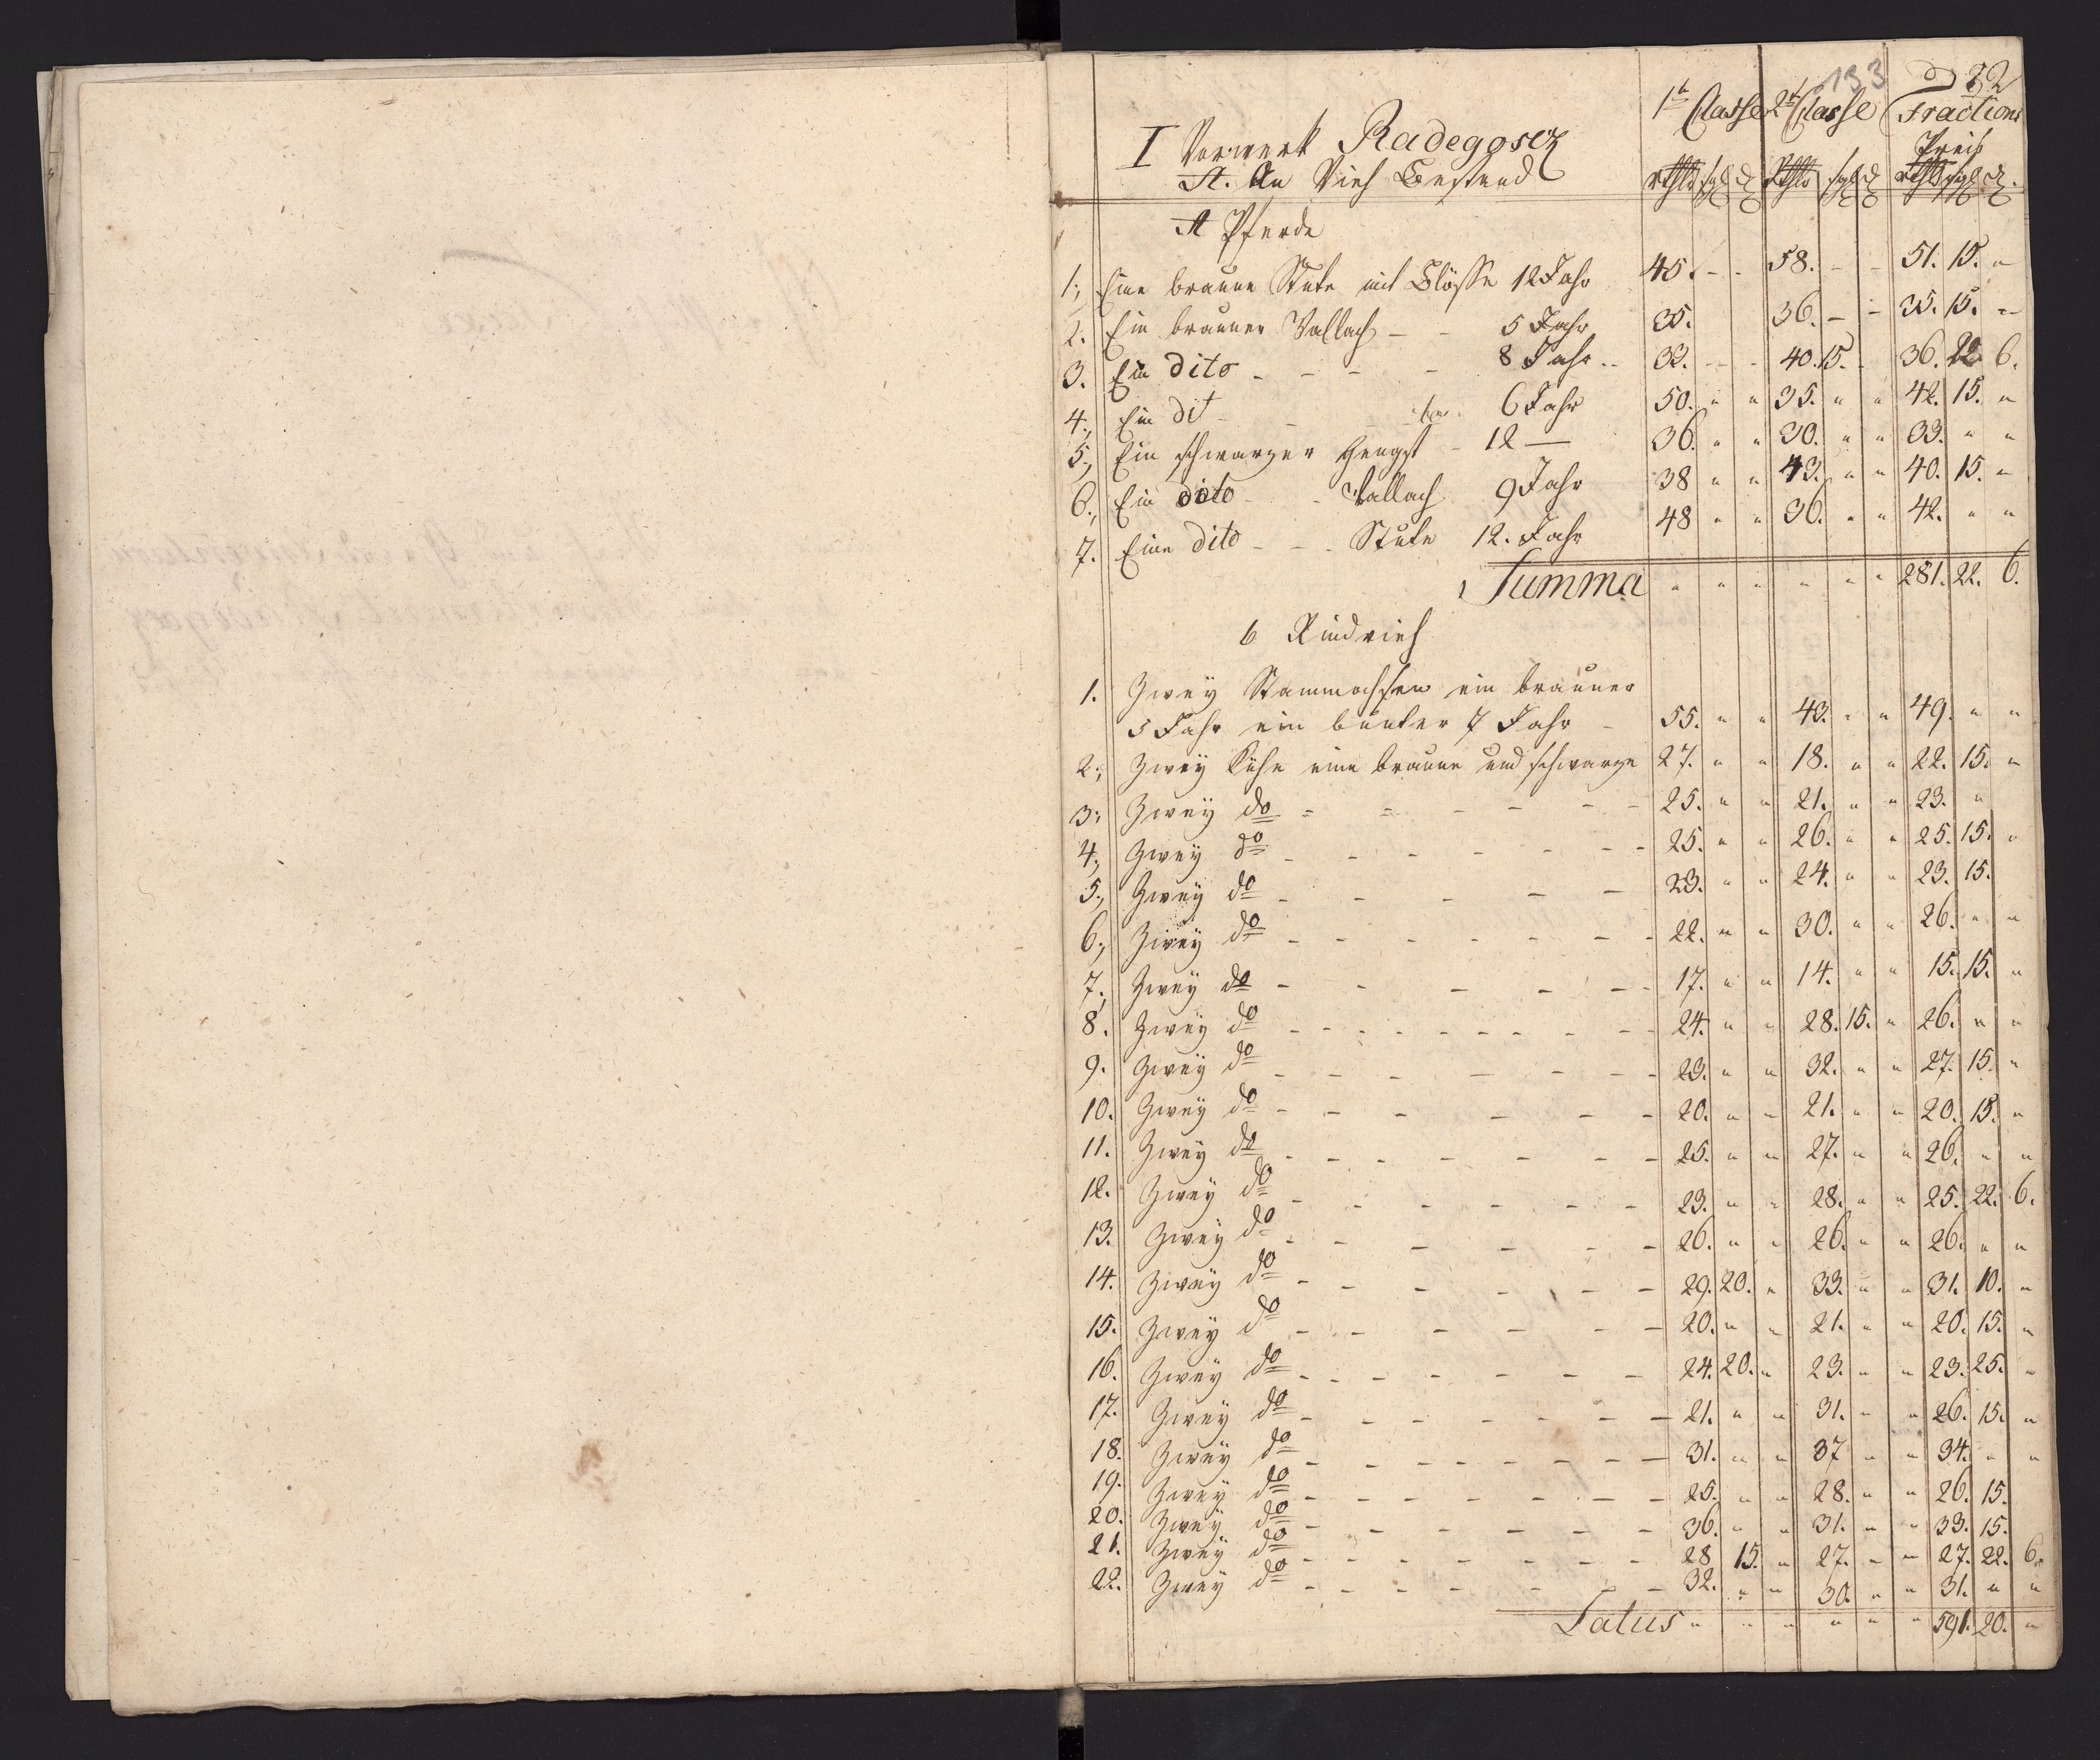 133 32
1te Classe 2te Classe Fractions
Preis
I Vorwerk Radegoscz
A. An Vieh Bestand rthlr sgl d Rthlr sgl d rthlr sgl d.
A Pferde
1., Eine braune Stute mit Blösse 12 Jahr 45. - - 58. - - 51. 15. "
2. Ein brauner Wallach - - 5 Jahr 35. 36. - - 35. 15. -
3. Ein dito - - - - 8 Jahr - 33. - - 40. 15. - 36. 22. 6.
4., Ein dit - - 6 Jahr 50. " " 35. " " 42. 15. "
5., Ein schwarzer Hengst - 12 — 36. " " 30. " " 33. " "
6., Ein dito - - Wallach 9 Jahr 38 " " 43. " " 40. 15. "
7. Eine dito - - - Stute 12. Jahr 48 " " 36. " " 42. " "
Summa " " " " " " 281. 22. 6.
b Rindvieh
1. Zwey Stammochsen ein brauner
5 Jahr ein bunter 7 Jahr - 55. " " 43. " " 49. " "
2., Zwey Kühe eine braune und schwarze 27. " " 18. " " 22. 15. "
3., Zwey do = = - - - - 25. " " 21. " " 23. "
4., Zwey do - - - - - - - 25. " " 26. " " 25. 15. "
5., Zwey do - - - - - 23. " " 24. " " 23. 15.
6., Zwey do - - - - - - - 22. " " 30. " " 26. " "
7., Zwey do - - - - - - 17. " " 14. " " 15. 15. "
8. Zwey do - - - - - - - - - 24. " " 28. 15. " 26. " "
9. Zwey do - - - - - - - 23. " " 32. " " 27. 15. "
10. Zwey do - - - - - - 20. " " 21. " " 20. 15. "
11. Zwey do - - - - - - - 25. " " 27. " " 26. " "
12. Zwey do - - - - - - - 23. " " 28. " " 25. 22. 6.
13. Zwey do - - - - - - 26. " " 26. " " 26. " "
14. Zwey do - - - - - - - 29. 20. " 33. " " 31. 10. "
15. Zwey do - - - - - - 20. " " 21. " " 20. 15. "
16. Zwey do - - - - - - - - 24. 20. " 23. " " 23. 25. "
17. Zwey do - - - - - - - 21. " " 31. " " 26. 15. "
18. Zwey do - - - - - - - - 31. " " 37 " " 34. " "
19. Zwey do - - - - - - - 25. " " 28. " " 26. 15.
20. Zwey do - - - - - - - 36. " " 31. " " 33. 15.
21. Zwey do - - - - - - - 28 15. " 27. " " 27. 22. 6.
22. Zwey do - - - - - - - 32. " " 30. " " 31. " "
Latus " " " " " " 591. 20. "